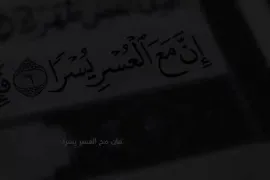 إِنَّ مَعَ ٱلْعُسْرِ يُسْرًا ٦
فإن مع العسر يسرا